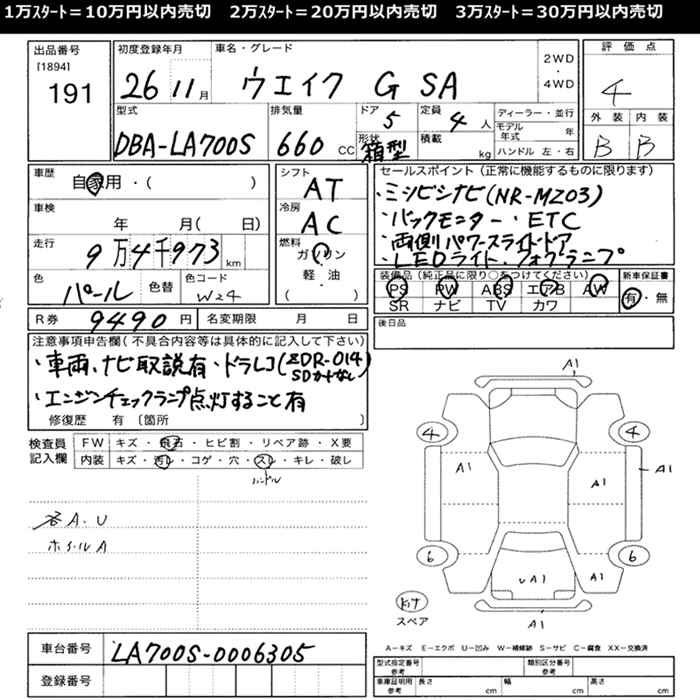 1万ｽﾀｰﾄ＝10万円以内売切　2万ｽﾀｰﾄ＝20万円以内売切　3万ｽﾀｰﾄ＝30万円以内売切
出品番号
[1894]
191
初度登録年月
26 11月
車名・グレード
ウエイク G SA
2WD
・
4WD
評価点
4
外装 内装
B B
型式
DBA-LA700S
排気量
660 CC
ドア
5
定員
4人
形状
箱型
積載
kg
ディーラー・並行
モデル年式 年
ハンドル 左・右
車歴
自家用・( )
車検
年 月( 日)
走行
9万4千973 km
色
パール
色替
色コード
W24
シフト
AT
冷房
AC
燃料
ガソリン
軽・油
( )
セールスポイント（正常に機能するものに限ります）
・ミツビシナビ(NR-MZ03)
・バックモニター・ETC
・両側パワースライドドア
・LEDライト・フォグランプ
装備品（純正品に限り○をつけてください）
PS PW ABS エアB AW
SR ナビ TV カワ
新車保証書
有・無
R券 9490円
名変期限 月 日
後日品
注意事項申告欄（不具合内容等は具体的に記入して下さい）
・車両、ナビ取説有・ドラレコ(DR-014)
SDカードなし
・エンジンチェックランプ点灯すること有
修復歴 有〔箇所 〕
検査員
記入欄
FW キズ・飛石・ヒビ割・リペア跡・X要
内装 キズ・汚れ・コゲ・穴・スレ・キレ・破レ
ハンドル
各A.U
ホイールA
A1
4 4
A1 A1 A1
6 6
UA1 A1
キット
スペア
A1
A－キズ E－エクボ U－凹み W－補修跡 S－サビ C－腐食 XX－交換済
車台番号 LA700S-0006305
登録番号
型式指定番号
参考
類別区分番号
参考
車庫証明用
参考
長さ cm 幅 cm 高さ cm